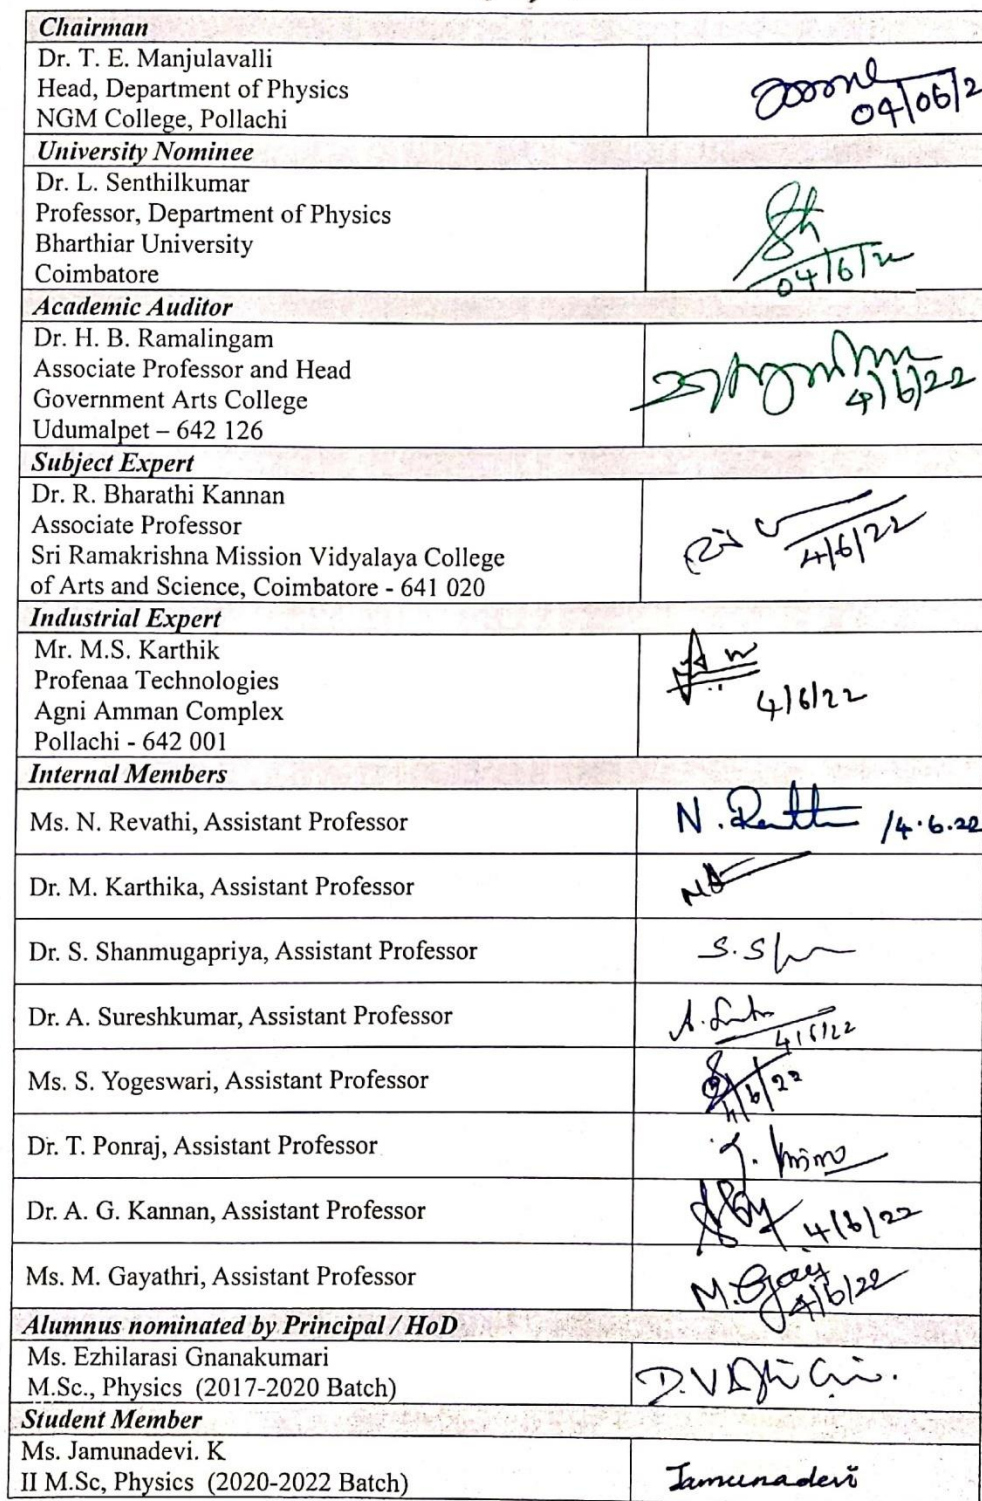 Chairman
Dr. T. E. Manjulavalli
Head, Department of Physics
NGM College, Pollachi
04/06/2
University Nominee
Dr. L. Senthilkumar
Professor, Department of Physics
Bharthiar University
Coimbatore
04/6/22
Academic Auditor
Dr. H. B. Ramalingam
Associate Professor and Head
Government Arts College
Udumalpet – 642 126
4/6/22
Subject Expert
Dr. R. Bharathi Kannan
Associate Professor
Sri Ramakrishna Mission Vidyalaya College
of Arts and Science, Coimbatore - 641 020
4/6/22
Industrial Expert
Mr. M.S. Karthik
Profenaa Technologies
Agni Amman Complex
Pollachi - 642 001
4/6/22
Internal Members
Ms. N. Revathi, Assistant Professor
N. /4.6.22
Dr. M. Karthika, Assistant Professor
Dr. S. Shanmugapriya, Assistant Professor
S.
Dr. A. Sureshkumar, Assistant Professor
A. 4/6/22
Ms. S. Yogeswari, Assistant Professor
4/6/22
Dr. T. Ponraj, Assistant Professor
Dr. A. G. Kannan, Assistant Professor
4/6/22
Ms. M. Gayathri, Assistant Professor
M. 4/6/22
Alumnus nominated by Principal / HoD
Ms. Ezhilarasi Gnanakumari
M.Sc., Physics (2017-2020 Batch)
Student Member
Ms. Jamunadevi. K
II M.Sc, Physics (2020-2022 Batch)
Jamunadevi